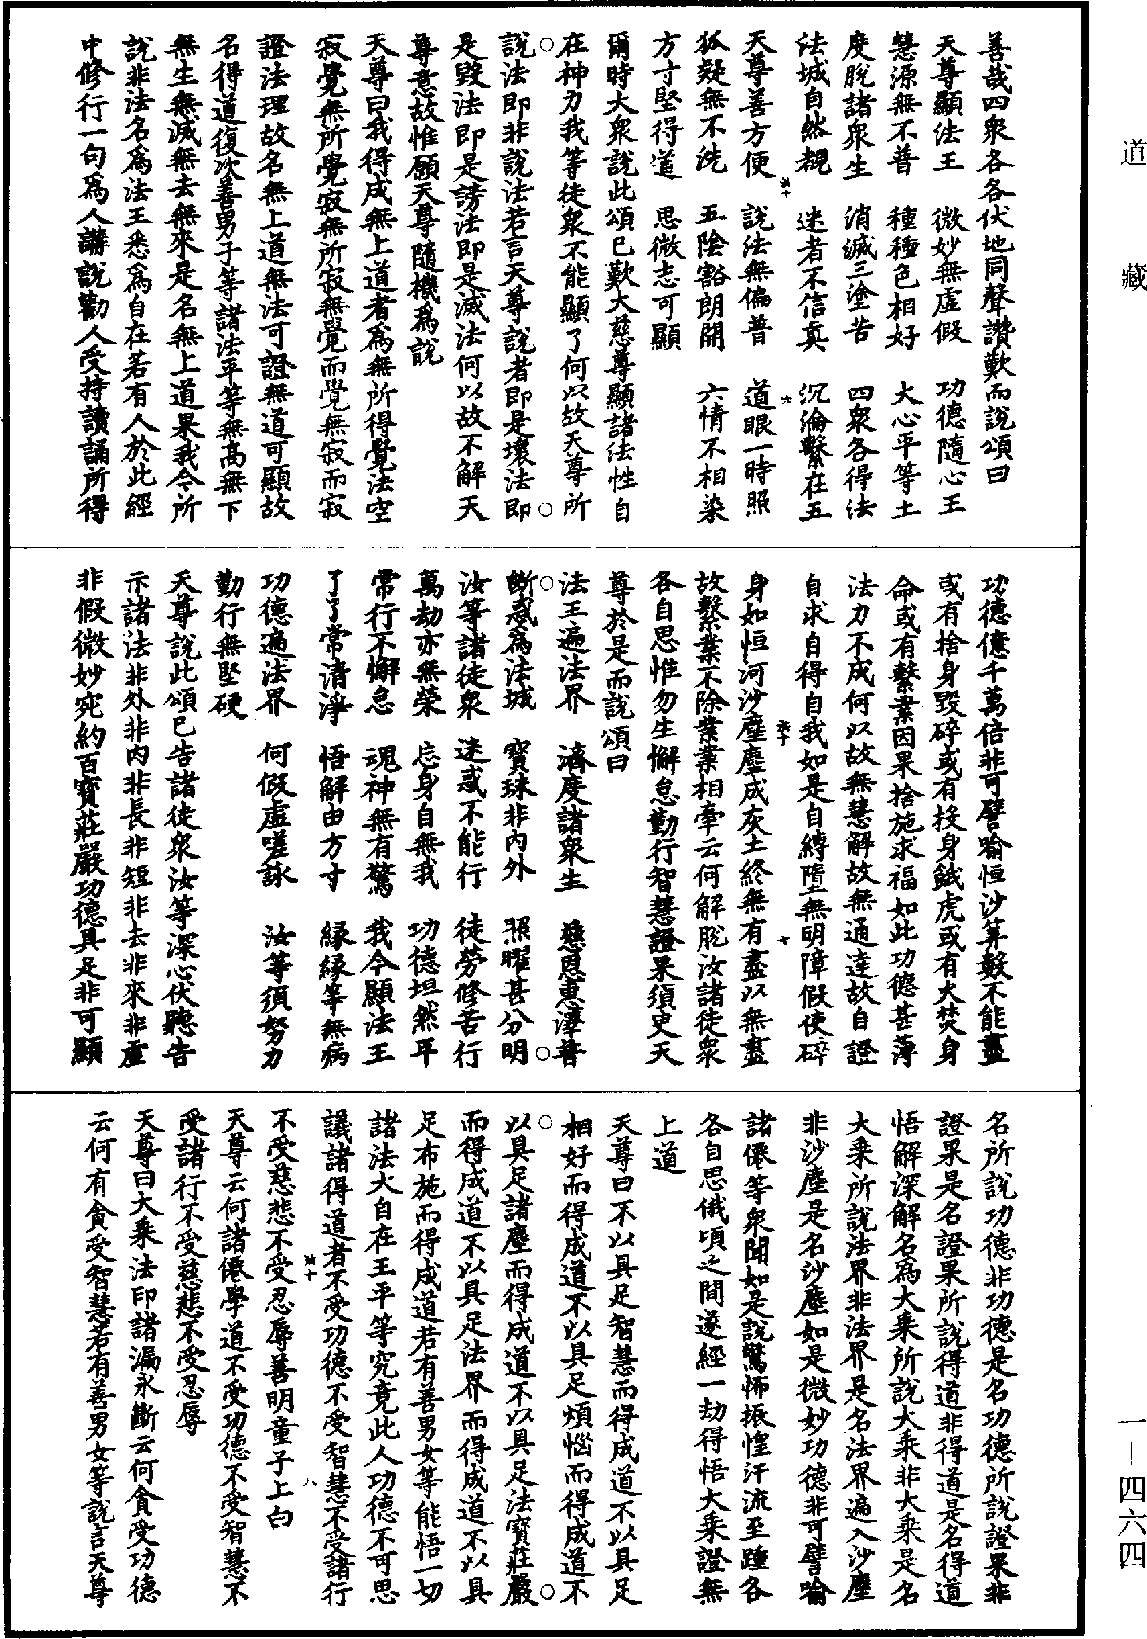 道藏
善哉四衆各各伏地同聲讚歎而說頌曰
天尊顯法王　微妙無虛假　功德隨心王
慧源無不普　種種色相好　大心平等土
度脫諸衆生　消滅三塗苦　四衆各得法
法城自然覩　迷者不信真　沉淪繫在五
天尊善方便　說法無偏普　道眼一時照
狐疑無不洗　五陰豁朗開　六情不相染
方寸堅得道　思微志可顯
爾時大衆說此頌已歎大慈尊顯諸法性自
在神力我等徒衆不能顯了何以故天尊所
說法即非說法若言天尊說者即是壞法即
是毀法即是謗法即是滅法何以故不解天
尊意故惟願天尊隨機爲說
天尊曰我得成無上道者爲無所得覺法空
寂覺無所覺寂無所寂無覺而覺無寂而寂
證法理故名無上道無法可證無道可顯故
名得道復次善男子等諸法平等無高無下
無生無滅無去無來是名無上道果我今所
說非法名爲法王悉爲自在若有人於此經
中修行一句爲人講說勸人受持讀誦所得
功德億千萬倍非可譬喻恒沙算數不能盡
或有捨身毀碎或有投身餓虎或有火焚身
命或有繫業因果捨施求福如此功德甚薄
法力不成何以故無慧解故無通達故自證
自求自得自我如是自縛墮無明障假使碎
身如恒河沙塵塵成灰土終無有盡以無盡
故繫業不除業業相牽云何解脫汝諸徒衆
各自思惟勿生懈怠勤行智慧證果須臾天
尊於是而說頌曰
法王遍法界　濟度諸衆生　慈恩惠澤普
斷惑爲法城　寶珠非內外　照曜甚分明
汝等諸徒衆　迷惑不能行　徒勞修苦行
萬劫亦無榮　忘身自無我　功德坦然平
常行不懈怠　魂神無有驚　我今顯法王
了了常清淨　悟解由方寸　緣緣等無病
功德遍法界　何假虛嗟詠　汝等須努力
勤行無堅硬
天尊說此頌已告諸徒衆汝等深心伏聽告
示諸法非外非內非長非短非去非來非虛
非假微妙宛約百寶莊嚴功德具足非可顯
名所說功德非功德是名功德所說證果非
證果是名證果所說得道非得道是名得道
悟解深解名爲大乘所說大乘非大乘是名
大乘所說法界非法界是名法界遍入沙塵
非沙塵是名沙塵如是微妙功德非可譬喻
諸僊等衆聞如是說驚怖振惶汗流至踵各
各自思俄頃之間遂經一劫得悟大乘證無
上道
天尊曰不以具足智慧而得成道不以具足
相好而得成道不以具足煩惱而得成道不
以具足諸塵而得成道不以具足法寶莊嚴
而得成道不以具足法界而得成道不以具
足布施而得成道若有善男女等能悟一切
諸法大自在王平等究竟此人功德不可思
議諸得道者不受功德不受智慧不受諸行
不受慈悲不受忍辱善明童子上白
天尊云何諸僊學道不受功德不受智慧不
受諸行不受慈悲不受忍辱
天尊曰大乘法印諸漏永斷云何貪受功德
云何有貪受智慧若有善男女等說言天尊
一—四六四